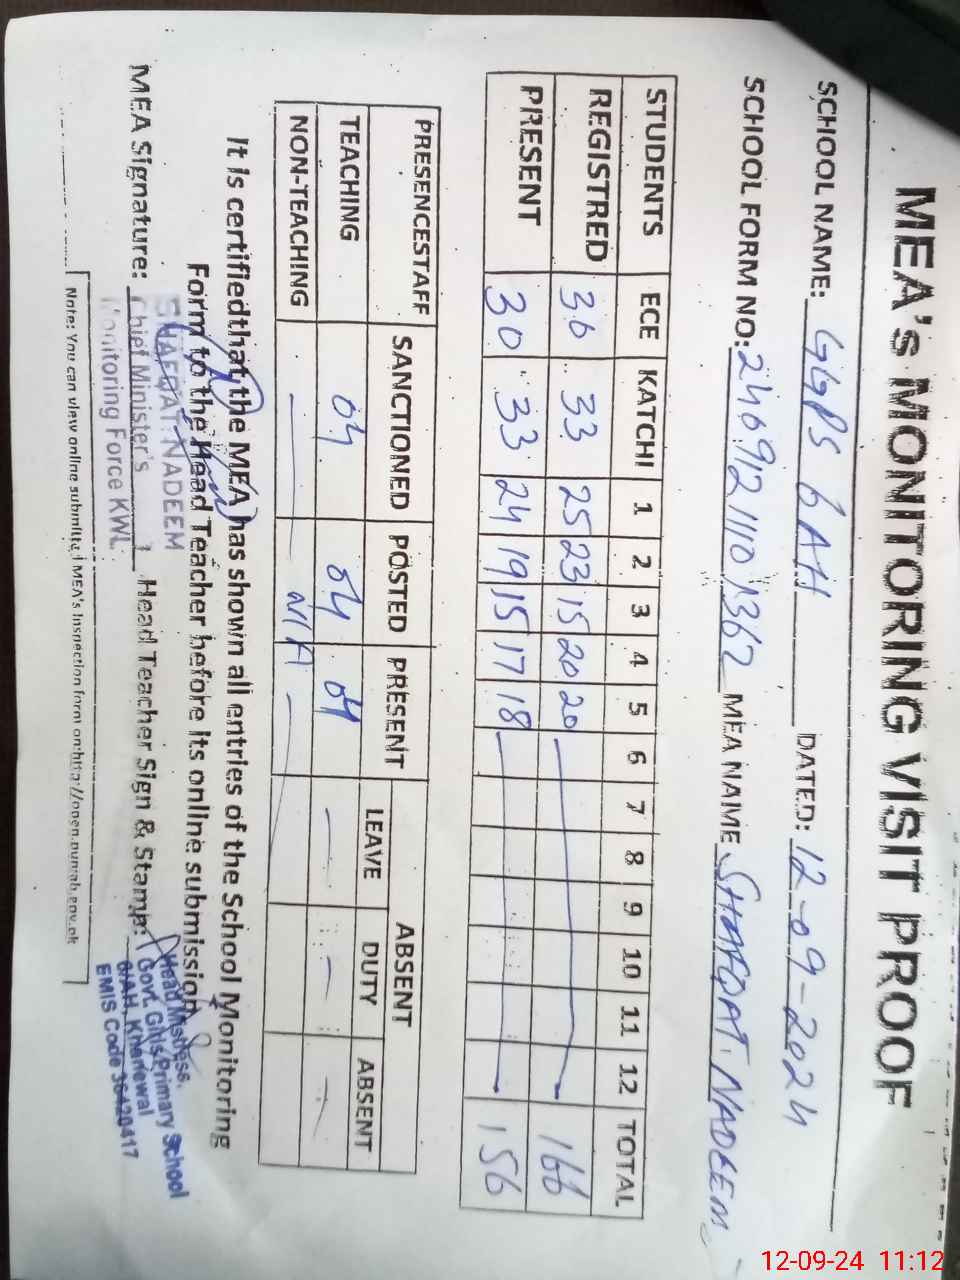 MEA's MONITORING VISIT PROOF
SCHOOL NAME: GGPS 6AH DATED: 12-09-2024
SCHOOL FORM NO: 240912111001362 MEA NAME SHAFQAT NADEEM
STUDENTS ECE KATCHI 1 2 3 4 5 6 7 8 9 10 11 12 TOTAL
REGISTRED 36 33 25 23 15 20 20 166
PRESENT 30 33 24 19 15 17 18 156
PRESENCESTAFF SANCTIONED POSTED PRESENT ABSENT
LEAVE DUTY ABSENT
TEACHING 04 04 04
NON-TEACHING N/A
It is certifiedthat the MEA has shown all entries of the School Monitoring
Form to the Head Teacher before its online submission
SHAFQAT NADEEM
MEA Signature: Chief Minister's Head Teacher Sign & Stamp:
Monitoring Force KWL.
Head Mistress.
Govt. Girls Primary School
6/AH, Khanewal
EMIS Code 36420417
Note: You can view online submitted MEA's Inspection form on:http://open.punjab.gov.pk
12-09-24 11:12